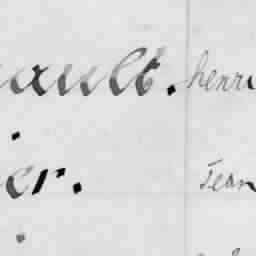 ault. henri
er. Jean